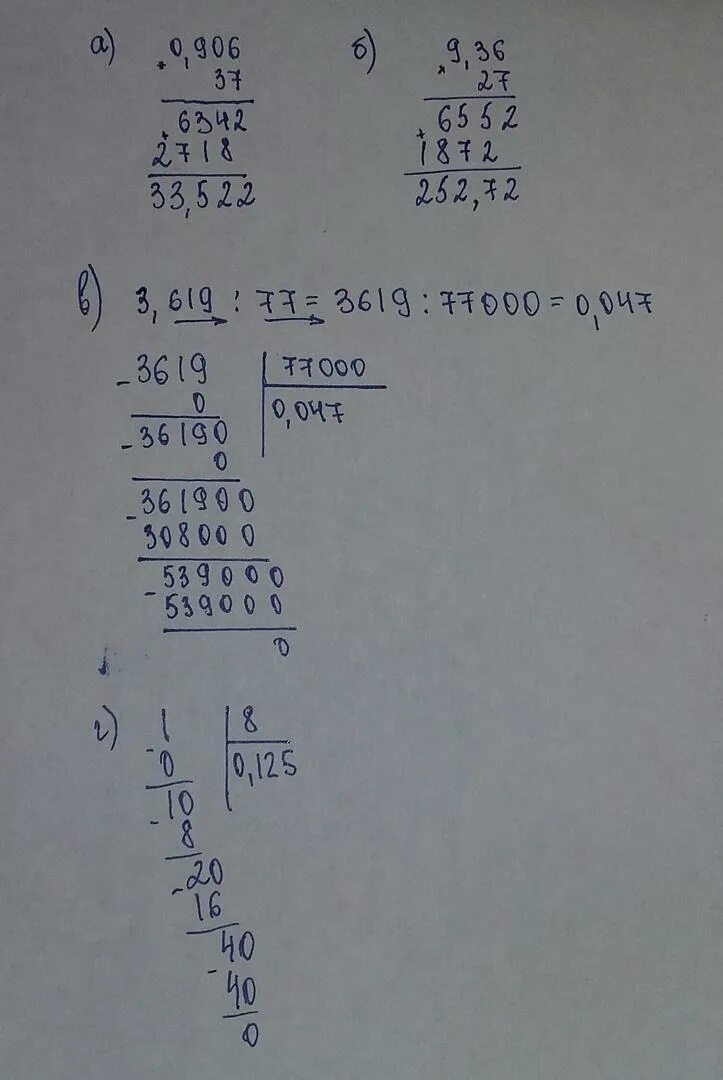 а) 0,906
× 37
6342
+ 2718
33,522
б) 9,36
× 27
6552
+ 1872
252,72
в) 3,619 : 77 = 3619 : 77000 = 0,047
- 3619 | 77000
0 | 0,047
- 36190
0
- 361900
308000
- 539000
539000
0
г) - 1 | 8
0 | 0,125
- 10
8
- 20
16
- 40
40
0